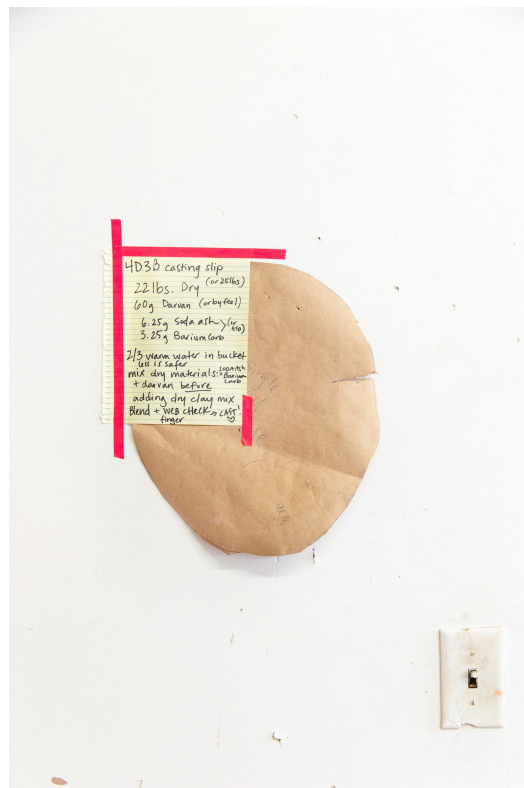 4D3B casting slip
22 lbs. Dry (or 25 lbs)
60g Darvan (or by feel)
6.25g Soda ash (or tsp)
3.25g Barium Carb
2/3 warm water in bucket
less is safer
mix dry materials: Soda Ash + Barium Carb
+ darvan before
adding dry clay mix
Blend + WEB CHECK → CAST!
finger